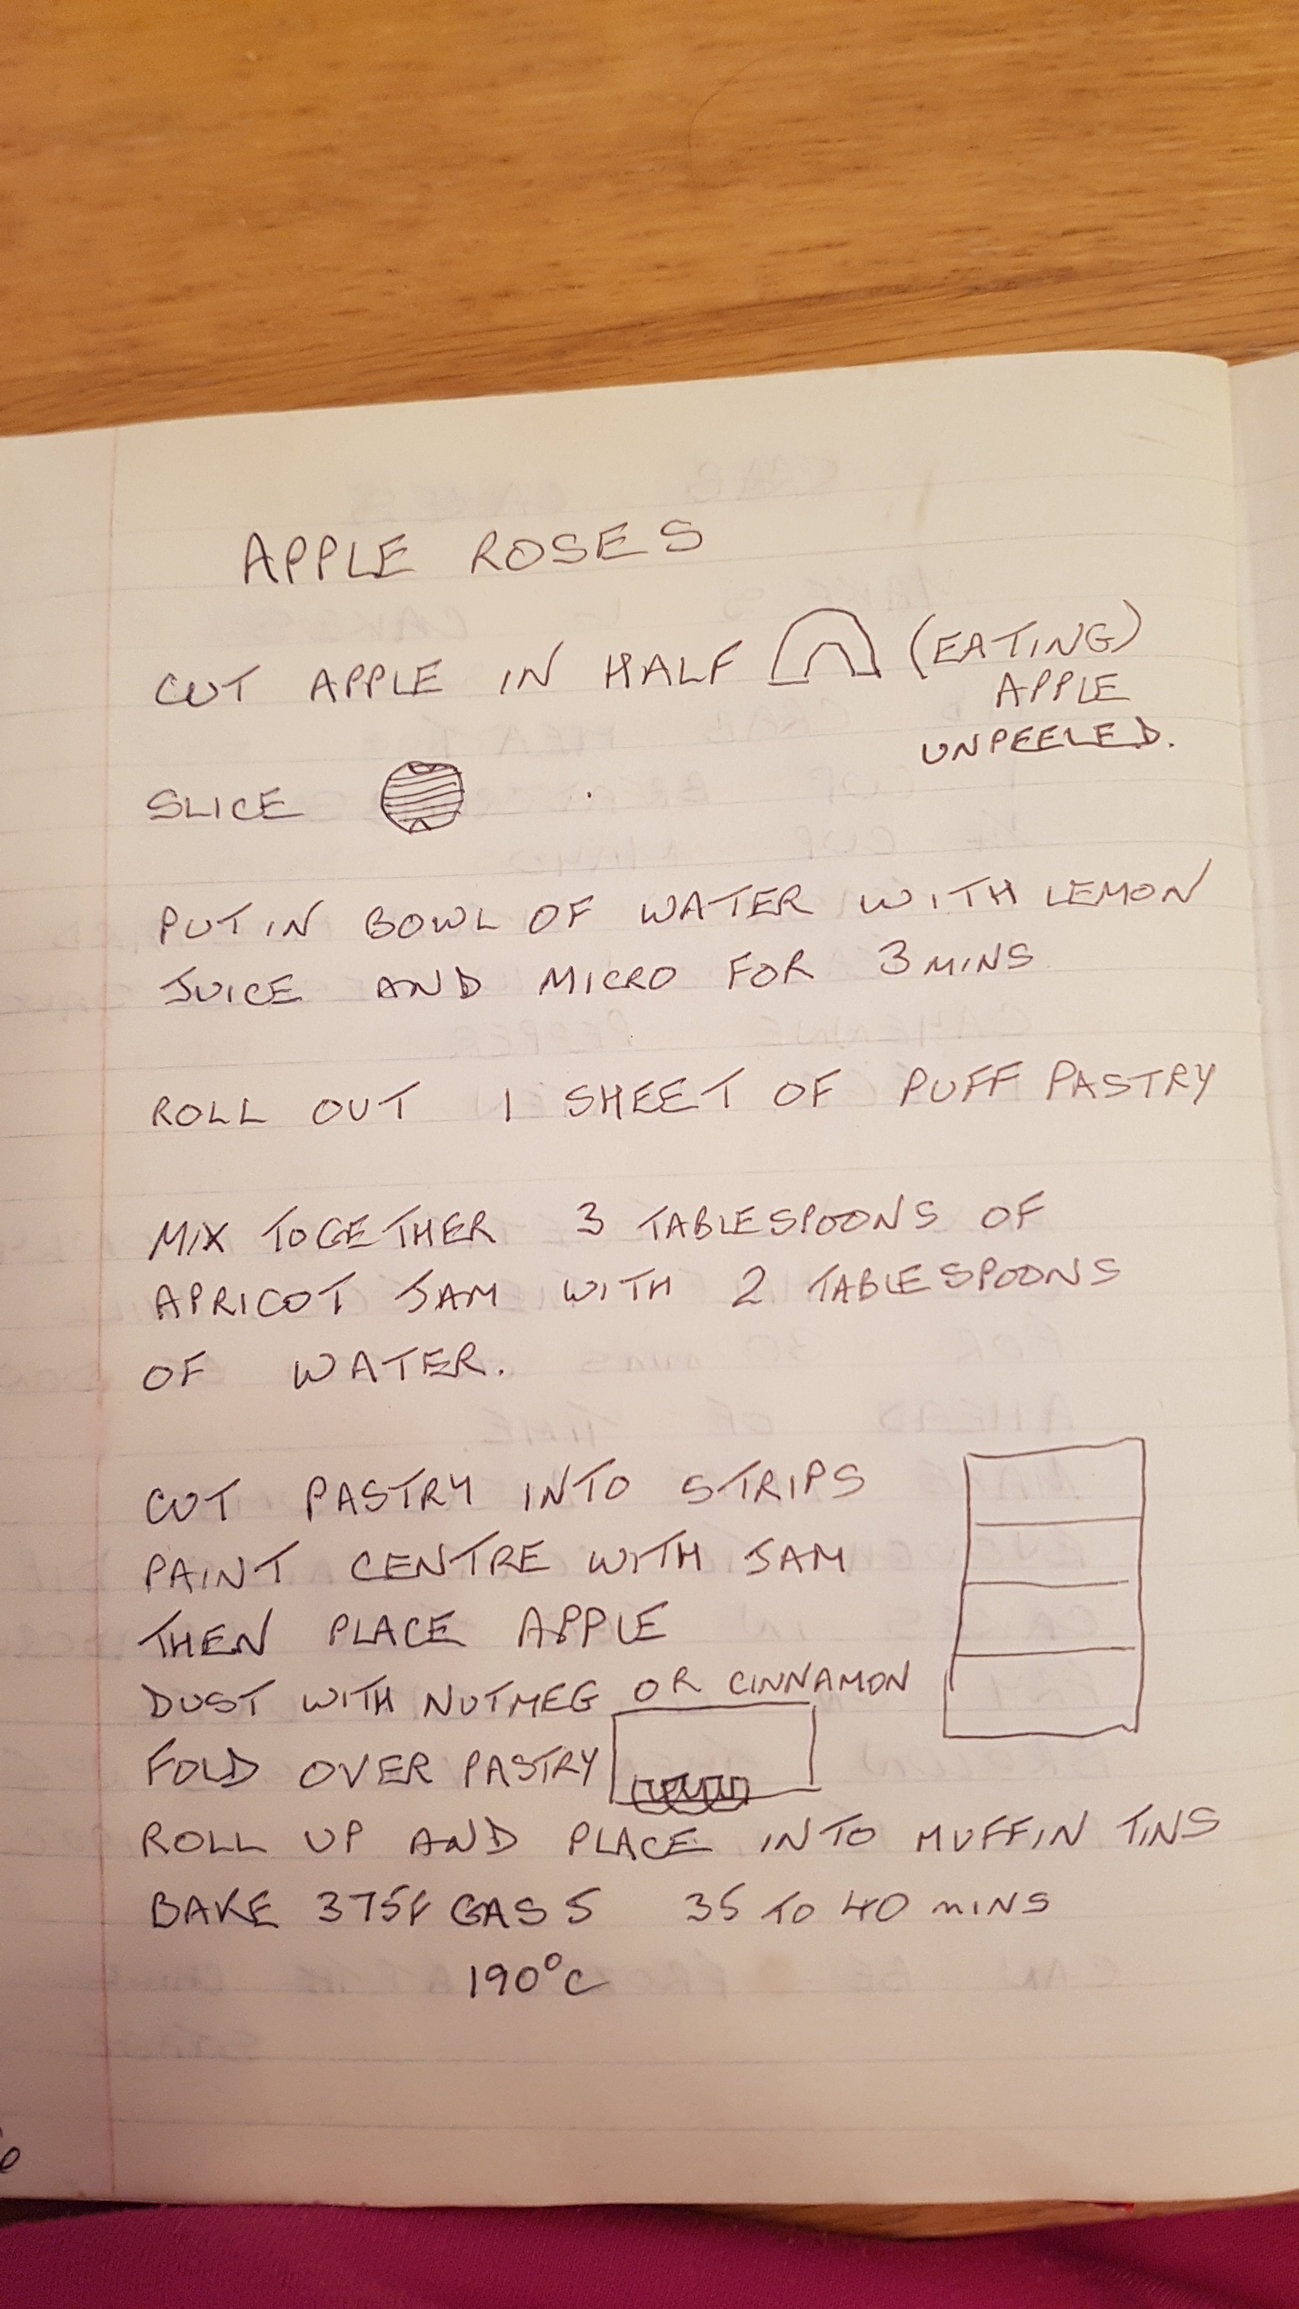 APPLE ROSES
CUT APPLE IN HALF (EATING)
APPLE
UNPEELED.
SLICE
PUT IN BOWL OF WATER WITH LEMON
JUICE AND MICRO FOR 3 MINS
ROLL OUT 1 SHEET OF PUFF PASTRY
MIX TOGETHER 3 TABLESPOONS OF
APRICOT JAM WITH 2 TABLESPOONS
OF WATER.
CUT PASTRY INTO STRIPS
PAINT CENTRE WITH JAM
THEN PLACE APPLE
DUST WITH NUTMEG OR CINNAMON
FOLD OVER PASTRY
ROLL UP AND PLACE INTO MUFFIN TINS
BAKE 375F GAS 5 35 TO 40 MINS
190°C